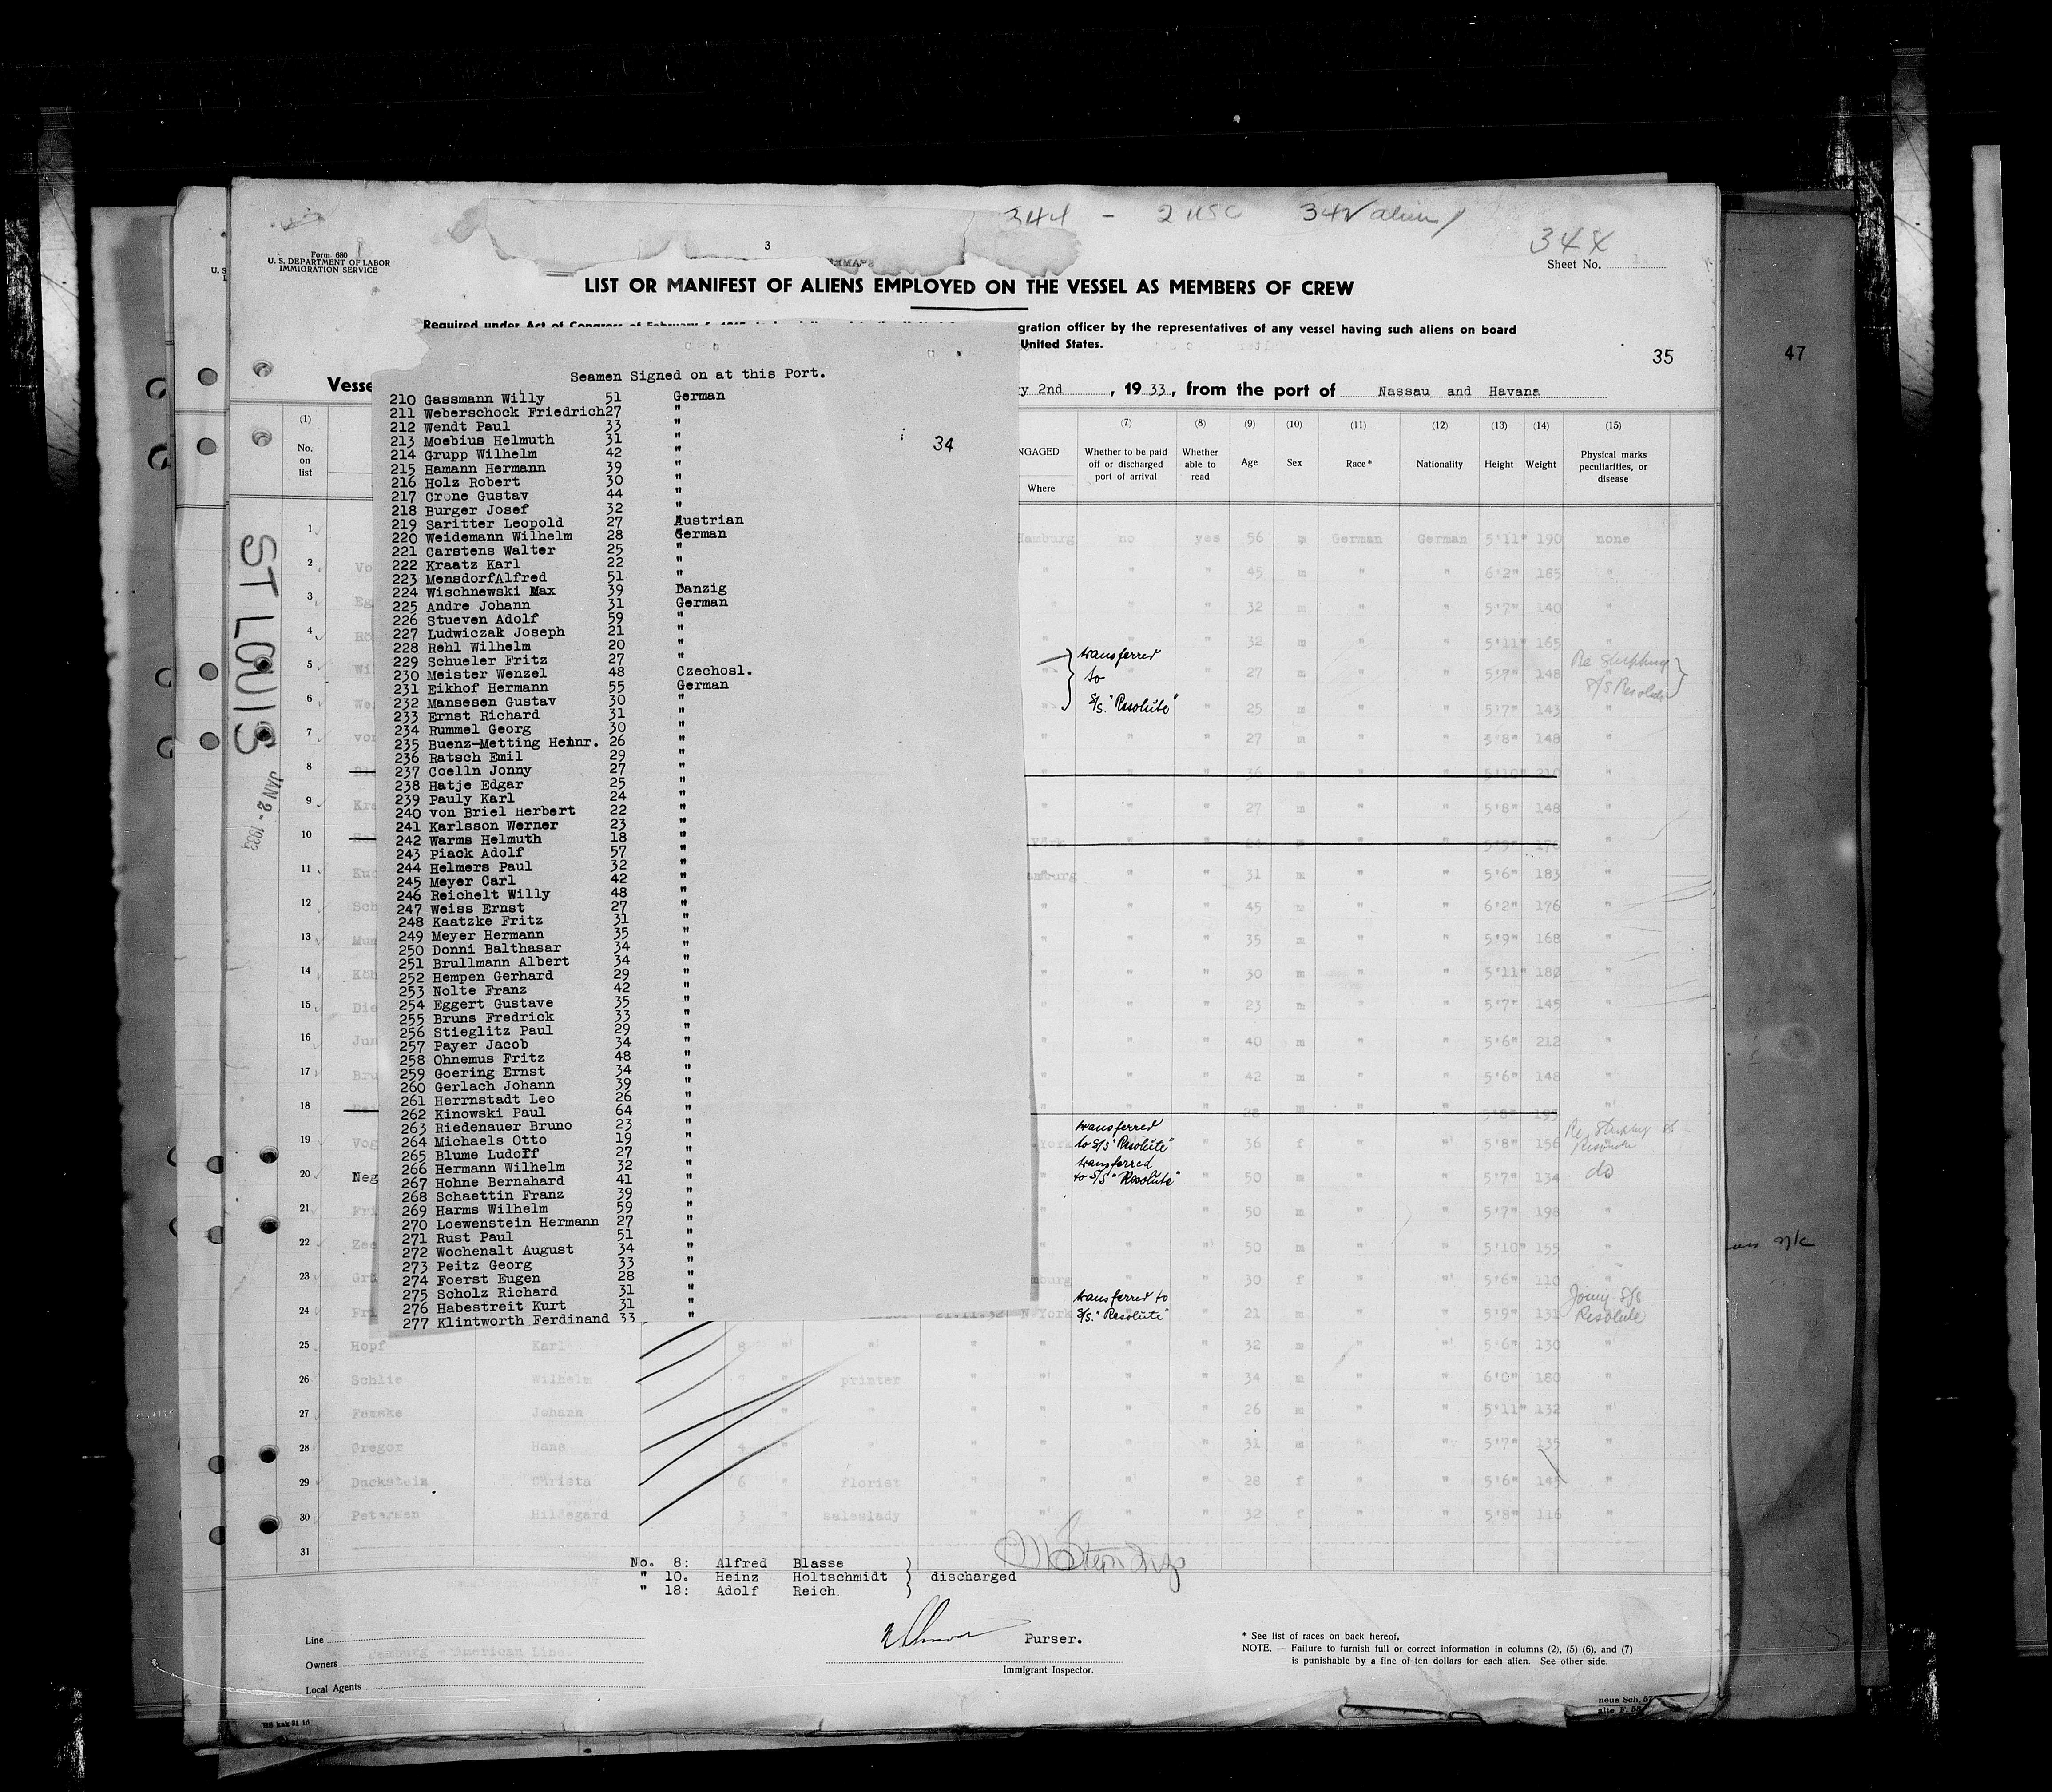 344 - 2 USC 342 aliens
344
3
Form 680
U. S. DEPARTMENT OF LABOR
IMMIGRATION SERVICE
Sheet No.
LIST OR MANIFEST OF ALIENS EMPLOYED ON THE VESSEL AS MEMBERS OF CREW
Required under Act of Congress of February
gration officer by the representatives of any vessel having such aliens on board
United States.
35
47
Vesse
y 2nd , 19 33, from the port of Nassau and Havana
Seamen Signed on at this Port.
34
210 Gassmann Willy 51 German
211 Weberschock Friedrich 27 "
212 Wendt Paul 33 "
213 Moebius Helmuth 31 "
214 Grupp Wilhelm 42 "
215 Hamann Hermann 39 "
216 Holz Robert 30 "
217 Crone Gustav 44 "
218 Burger Josef 32 "
219 Saritter Leopold 27 Austrian
220 Weidemann Wilhelm 28 German
221 Carstens Walter 25 "
222 Kraatz Karl 22 "
223 MensdorfAlfred 51 "
224 Wischnewski Max 39 Danzig
225 Andre Johann 31 German
226 Stueven Adolf 59 "
227 Ludwiczak Joseph 21 "
228 Rehl Wilhelm 20 "
229 Schueler Fritz 27 "
230 Meister Wenzel 48 Czechosl.
231 Eikhof Hermann 55 German
232 Mansesen Gustav 30 "
233 Ernst Richard 31 "
234 Rummel Georg 30 "
235 Buenz-Metting Heinr. 26 "
236 Ratsch Emil 29 "
237 Coelln Jonny 27 "
238 Hatje Edgar 25 "
239 Pauly Karl 24 "
240 von Briel Herbert 22 "
241 Karlsson Werner 23 "
242 Warms Helmuth 18 "
243 Piack Adolf 57 "
244 Helmers Paul 32 "
245 Meyer Carl 42 "
246 Reichelt Willy 48 "
247 Weiss Ernst 27 "
248 Kaatzke Fritz 31 "
249 Meyer Hermann 35 "
250 Donni Balthasar 34 "
251 Brullmann Albert 34 "
252 Hempen Gerhard 29 "
253 Nolte Franz 42 "
254 Eggert Gustave 35 "
255 Bruns Fredrick 33 "
256 Stieglitz Paul 29 "
257 Payer Jacob 34 "
258 Ohnemus Fritz 48 "
259 Goering Ernst 34 "
260 Gerlach Johann 39 "
261 Herrnstadt Leo 26 "
262 Kinowski Paul 64 "
263 Riedenauer Bruno 23 "
264 Michaels Otto 19 "
265 Blume Ludoff 27 "
266 Hermann Wilhelm 32 "
267 Hohne Bernahard 41 "
268 Schaettin Franz 39 "
269 Harms Wilhelm 59 "
270 Loewenstein Hermann 27 "
271 Rust Paul 51 "
272 Wochenalt August 34 "
273 Peitz Georg 33 "
274 Foerst Eugen 28 "
275 Scholz Richard 31 "
276 Habestreit Kurt 31 "
277 Klintworth Ferdinand 33 "
ST LOUIS
JAN 2 - 1933
(1) (7) (8) (9) (10) (11) (12) (13) (14) (15)
No. on list
NGAGED
Where
Whether to be paid off or discharged port of arrival
Whether able to read
Age
Sex
Race*
Nationality
Height
Weight
Physical marks peculiarities, or disease
1 Hamburg no yes 56 m German German 5'11" 190 none
2 Vo " " " 45 m " " 6'2" 185 "
3 Eg " " " 32 m " " 5'7" 140 "
4 " " " 32 m " " 5'11" 165 "
transferred to S/S. "Resolute"
5 Wi " " 27 m " " 5'7" 148 Re shipping S/S Resolute
6 We " " 25 m " " 5'7" 143 "
7 von " " 27 m " " 5'8" 148 "
8 " " " 36 m " " 5'10" 210 "
9 Kra " " " 27 m " " 5'8" 148 "
10 " " m " " 5'9" "
11 Kuc amburg " " 31 m " " 5'6" 183 "
12 Sch " " " 45 m " " 6'2" 176 "
13 Mun " " " 35 m " " 5'9" 168 "
14 Köh " " " 30 m " " 5'11" 180 "
15 Die " " " 23 m " " 5'7" 145 "
16 Jun " " " 40 m " " 5'6" 212 "
17 Bru " " " 42 m " " 5'6" 148 "
18 " " " 28 m " " 5'8" "
19 Vog York transferred to S/S "Resolute" " 36 f " " 5'8" 156 Re
20 Neg " transferred to S/S "Resolute" " 50 m " " 5'7" 134 do
21 Fri " " " 50 m " " 5'7" 198 "
22 Zee " " " 50 m " " 5'10" 155 "
23 Gr mburg " " 30 f " " 5'6" 110 "
24 Fri 21.11.32 N York transferred to S/S. "Resolute" " 21 m " " 5'9" 131 Joing S/S Resolute
25 Hopf Karl 8 " " " " " " 32 m " " 5'6" 130 "
26 Schlie Wilhelm 7 " printer " " " " 34 m " " 6'0" 180 "
27 Fezske Johann " " " " " " 26 m " " 5'11" 132 "
28 Gregor Hans 4 " " " " " " 31 m " " 5'7" 135 "
29 Duckstein Christa 6 " florist " " " " 28 f " " 5'6" 145 "
30 Petersen Hildegard 3 " saleslady " " " " 32 f " " 5'8" 116 "
31
No. 8: Alfred Blasse
" 10. Heinz Holtschmidt } discharged
" 18: Adolf Reich
Line
Owners Hamburg American Line
Local Agents
Purser.
Immigrant Inspector.
* See list of races on back hereof.
NOTE. — Failure to furnish full or correct information in columns (2), (5) (6), and (7)
is punishable by a fine of ten dollars for each alien. See other side.
neue Sch. 57